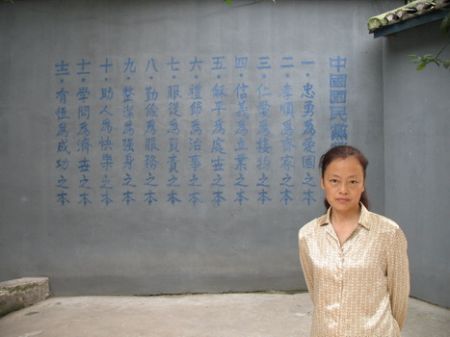 中國國民黨
一、忠勇為愛國之本
二、孝順為齊家之本
三、仁愛為接物之本
四、信義為立業之本
五、和平為處世之本
六、禮節為治事之本
七、服從為負責之本
八、勤儉為服務之本
九、整潔為強身之本
十、助人為快樂之本
十一、學問為濟世之本
十二、有恆為成功之本